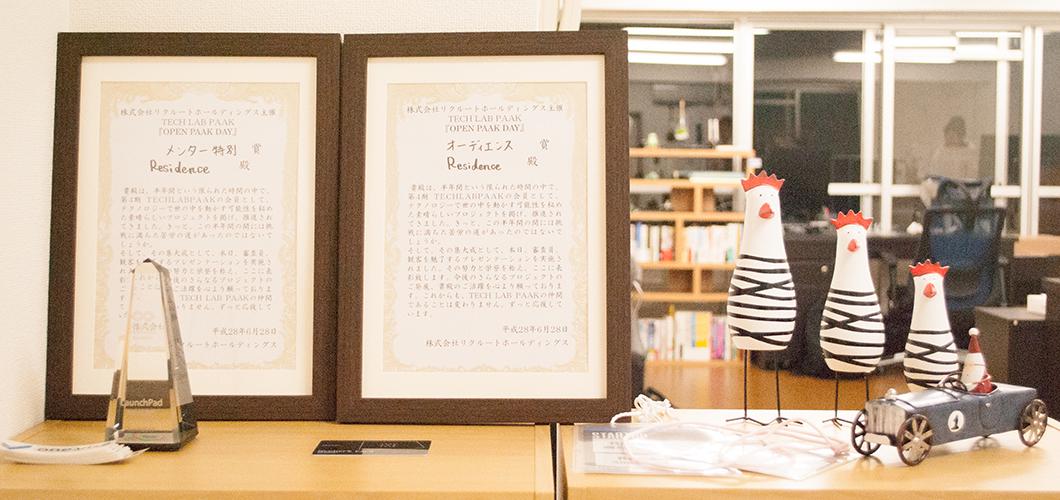 株式会社リクルートホールディングス主催
TECH LAB PAAK
『OPEN PAAK DAY』
メンター特別 賞
Residence 殿
貴殿は、半年間という限られた時間の中で、
第4期 TECHLABPAAKの会員として、
テクノロジーで世の中を動かす可能性を秘め
た素晴らしいプロジェクトを掲げ、推進され
てきました。きっと、この半年間の間には挑
戦に満ちた苦労の道があったのではないで
しょうか。
そして、その集大成として、本日、審査員、
観客を魅了するプレゼンテーションを実施さ
れました。その努力と栄誉を称え、ここに表
TECH LAB PAAKの仲間
平成28年6月28日
株式会社
リクルートホールディングス
LaunchPad
株式会社リクルートホールディングス主催
TECH LAB PAAK
『OPEN PAAK DAY』
オーディエンス 賞
Residence 殿
貴殿は、半年間という限られた時間の中で、
第4期 TECHLABPAAKの会員として、
テクノロジーで世の中を動かす可能性を秘め
た素晴らしいプロジェクトを掲げ、推進され
てきました。きっと、この半年間の間には挑
戦に満ちた苦労の道があったのではないで
しょうか。
そして、その集大成として、本日、審査員、
観客を魅了するプレゼンテーションを実施さ
れました。その努力と栄誉を称え、ここに表
彰致します。今後のさらなるプロジェクトの
ご発展、貴殿のご活躍を心より願っておりま
す。これからも、TECH LAB PAAKの仲間
であることは変わりません。ずっと応援して
います。
平成28年6月28日
株式会社リクルートホールディングス
1